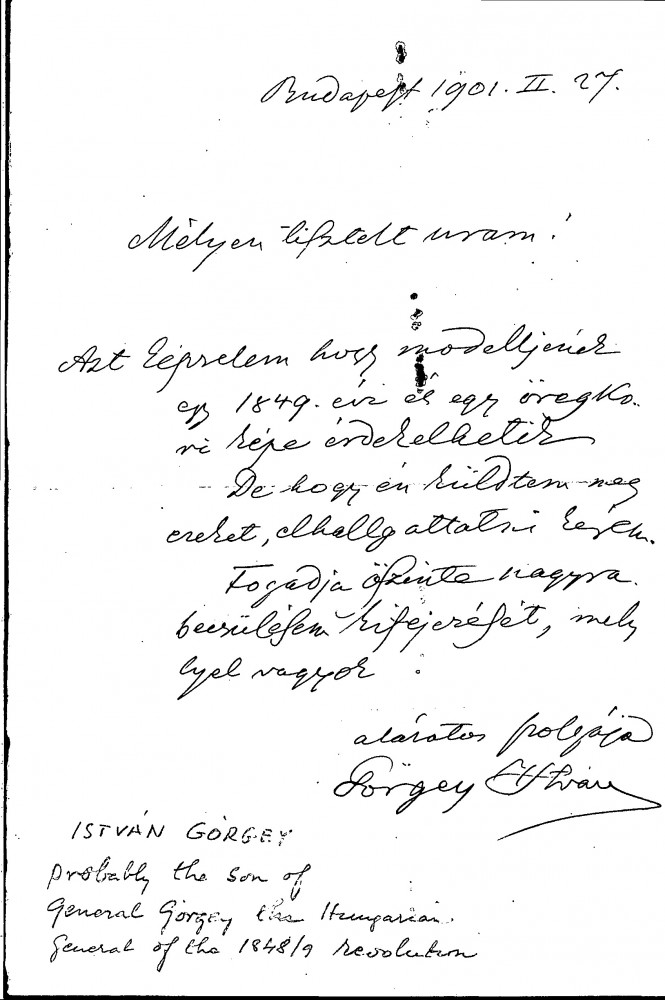 Budapest 1901. II. 27.
Mélyen tisztelt uram!
Azt képzelem hogy modelljének
egy 1849. évi és egy öregko-
ri képe érdekelhetik
De hogy én küldtem meg
ezeket, elhallgattatni kérem.
Fogadja őszinte nagyra-
becsülésem kifejezését, mely
lyel vagyok :
alázatos szolgája
Görgey István
ISTVÁN GÖRGEY
probably the son of
General Görgey the Hungarian
General of the 1848/9 revolution